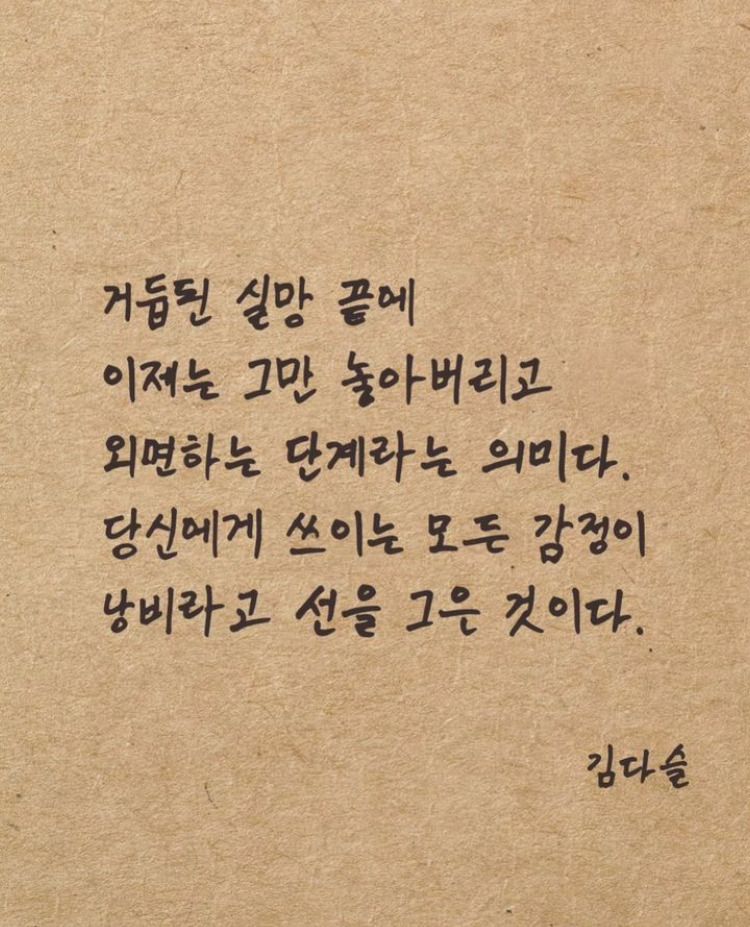 거듭된 실망 끝에
이제는 그만 놓아버리고
외면하는 단계라는 의미다.
당신에게 쓰이는 모든 감정이
낭비라고 선을 그은 것이다.
김다슬